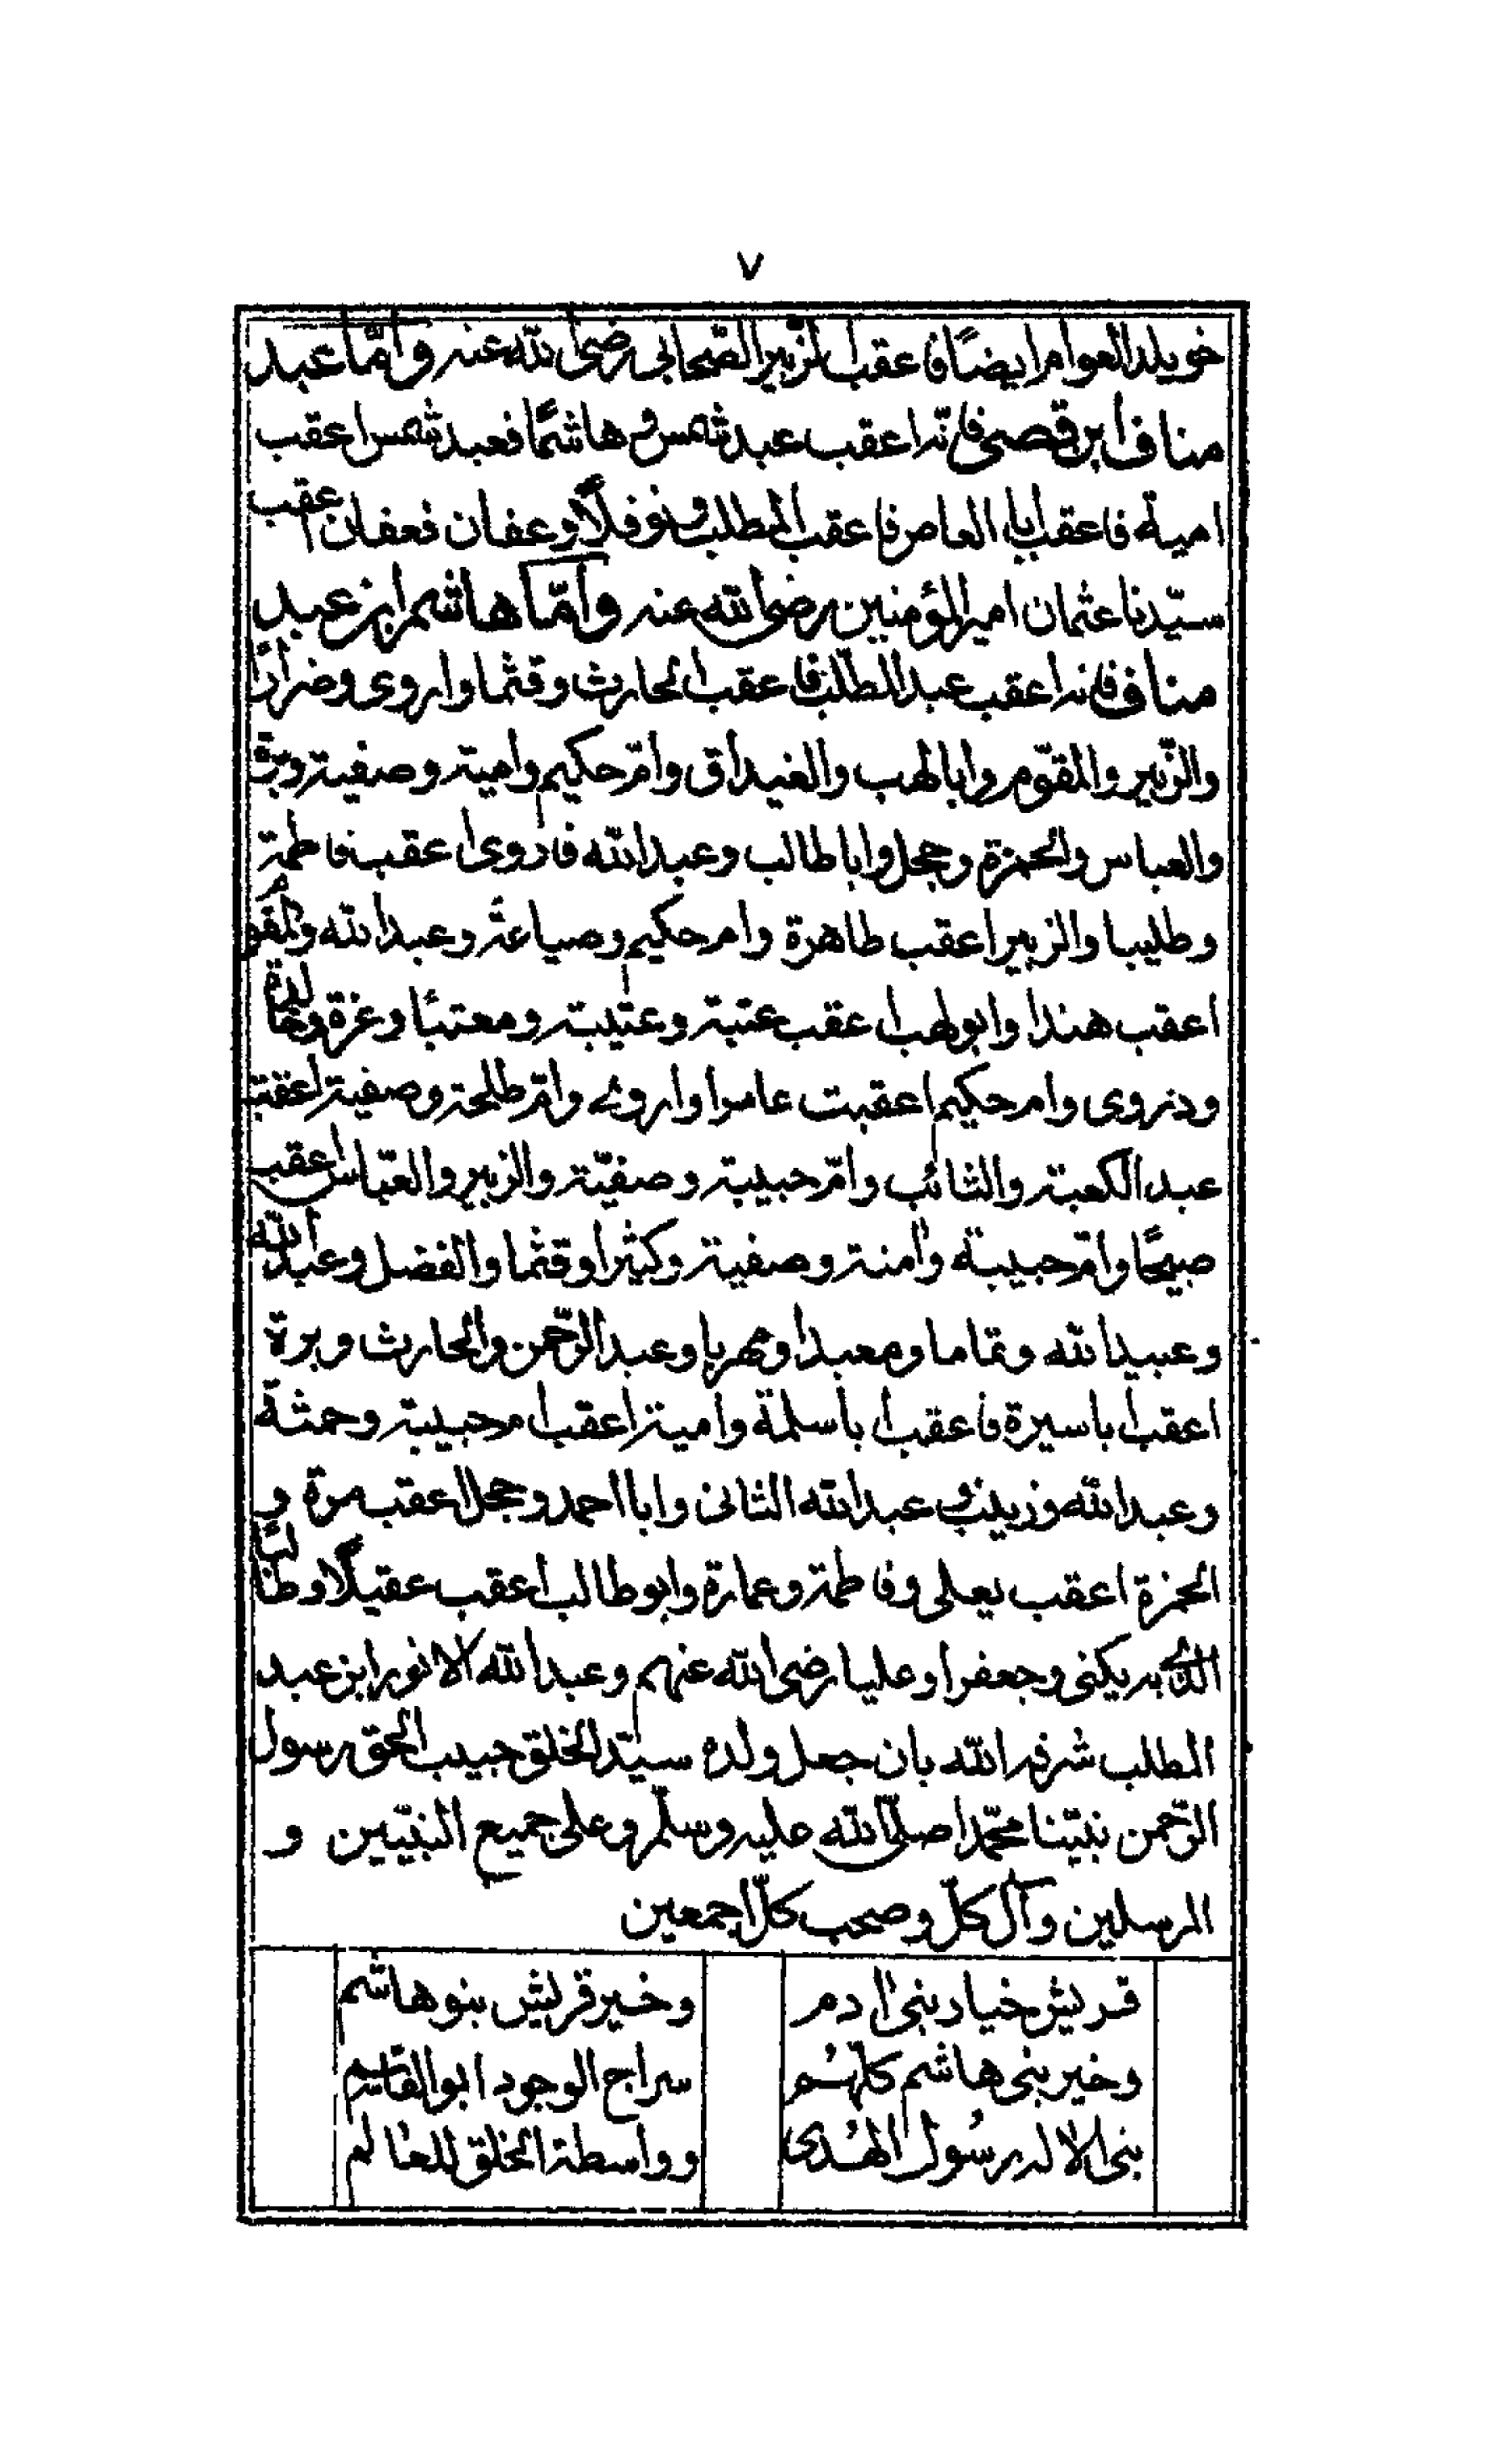 ٧
خويلد العوام ايضًا فاعقب الزبير الصّحابى رضى الله عنه وامّا عبد
مناف ابن قصى فانّه اعقب عبد شمس وهاشمًا فعبد شمس اعقب
امية فاعقب ابا العاص فاعقب المطلب ونوفلًا وعفان فعفان اعقب
سيّدنا عثمان امير المؤمنين رضى الله عنه وامّا هاشم ابن عبد
مناف فانه اعقب عبد المطلب فاعقب الحارث وقثما واروى وضرارًا
والزّبير والمقوّم وابا لهب والغيداق وامّ حكيم وامية وصفية وبرّة
والعباس والحمزة وجحل وابا طالب وعبد الله فاروى اعقب فاطمة
وطليبا والزبير اعقب طاهرة وام حكيم وصياعة وعبد الله والمقوم
اعقب هندا وابو لهب اعقب عتبة وعتيبة ومعتبًا وعزة وخالدة
ودزوى وام حكيم اعقبت عامرا واروى وامّ طلحة وصفية اعقبت
عبد الكعبة والسّائب وامّ حبيبة وصفيّة والزبير والعبّاس اعقب
صبيحًا وامّ حبيبة وامنة وصفية وكثيرا وقثما والفضل وعبد الله
وعبيد الله وتماما ومعبدا ومهربا وعبد الرّحمن والحارث وبرة
اعقب ابا سبرة فاعقب ابا سلمة وامية اعقب ام حبيبة وحمنة
وعبد الله وزينب وعبد الله الثانى وابا احمد وجحل اعقب مرة و
الحمزة اعقب يعلى وفاطمة وعمارة وابو طالب اعقب عقيلًا وطالبًا
الذى به يكنى وجعفرا وعليا رضى الله عنهم وعبد الله الانور ابن عبد
المطلب شرفه الله بان جعل ولده سيّد الخلق حبيب الحق رسول
الرّحمن نبيّنا محمّدا صلّى الله عليه وسلّم وعلى جميع النبيّين و
المرسلين وآل كلّ وصحب كلّ اجمعين
قريش خيار بنى ادم وخير قريش بنو هاشم
وخير بنى هاشم كلّهُم سراج الوجود ابو القاسم
نبى الاله رسُول الهُدى وواسطة الخلق للعالم